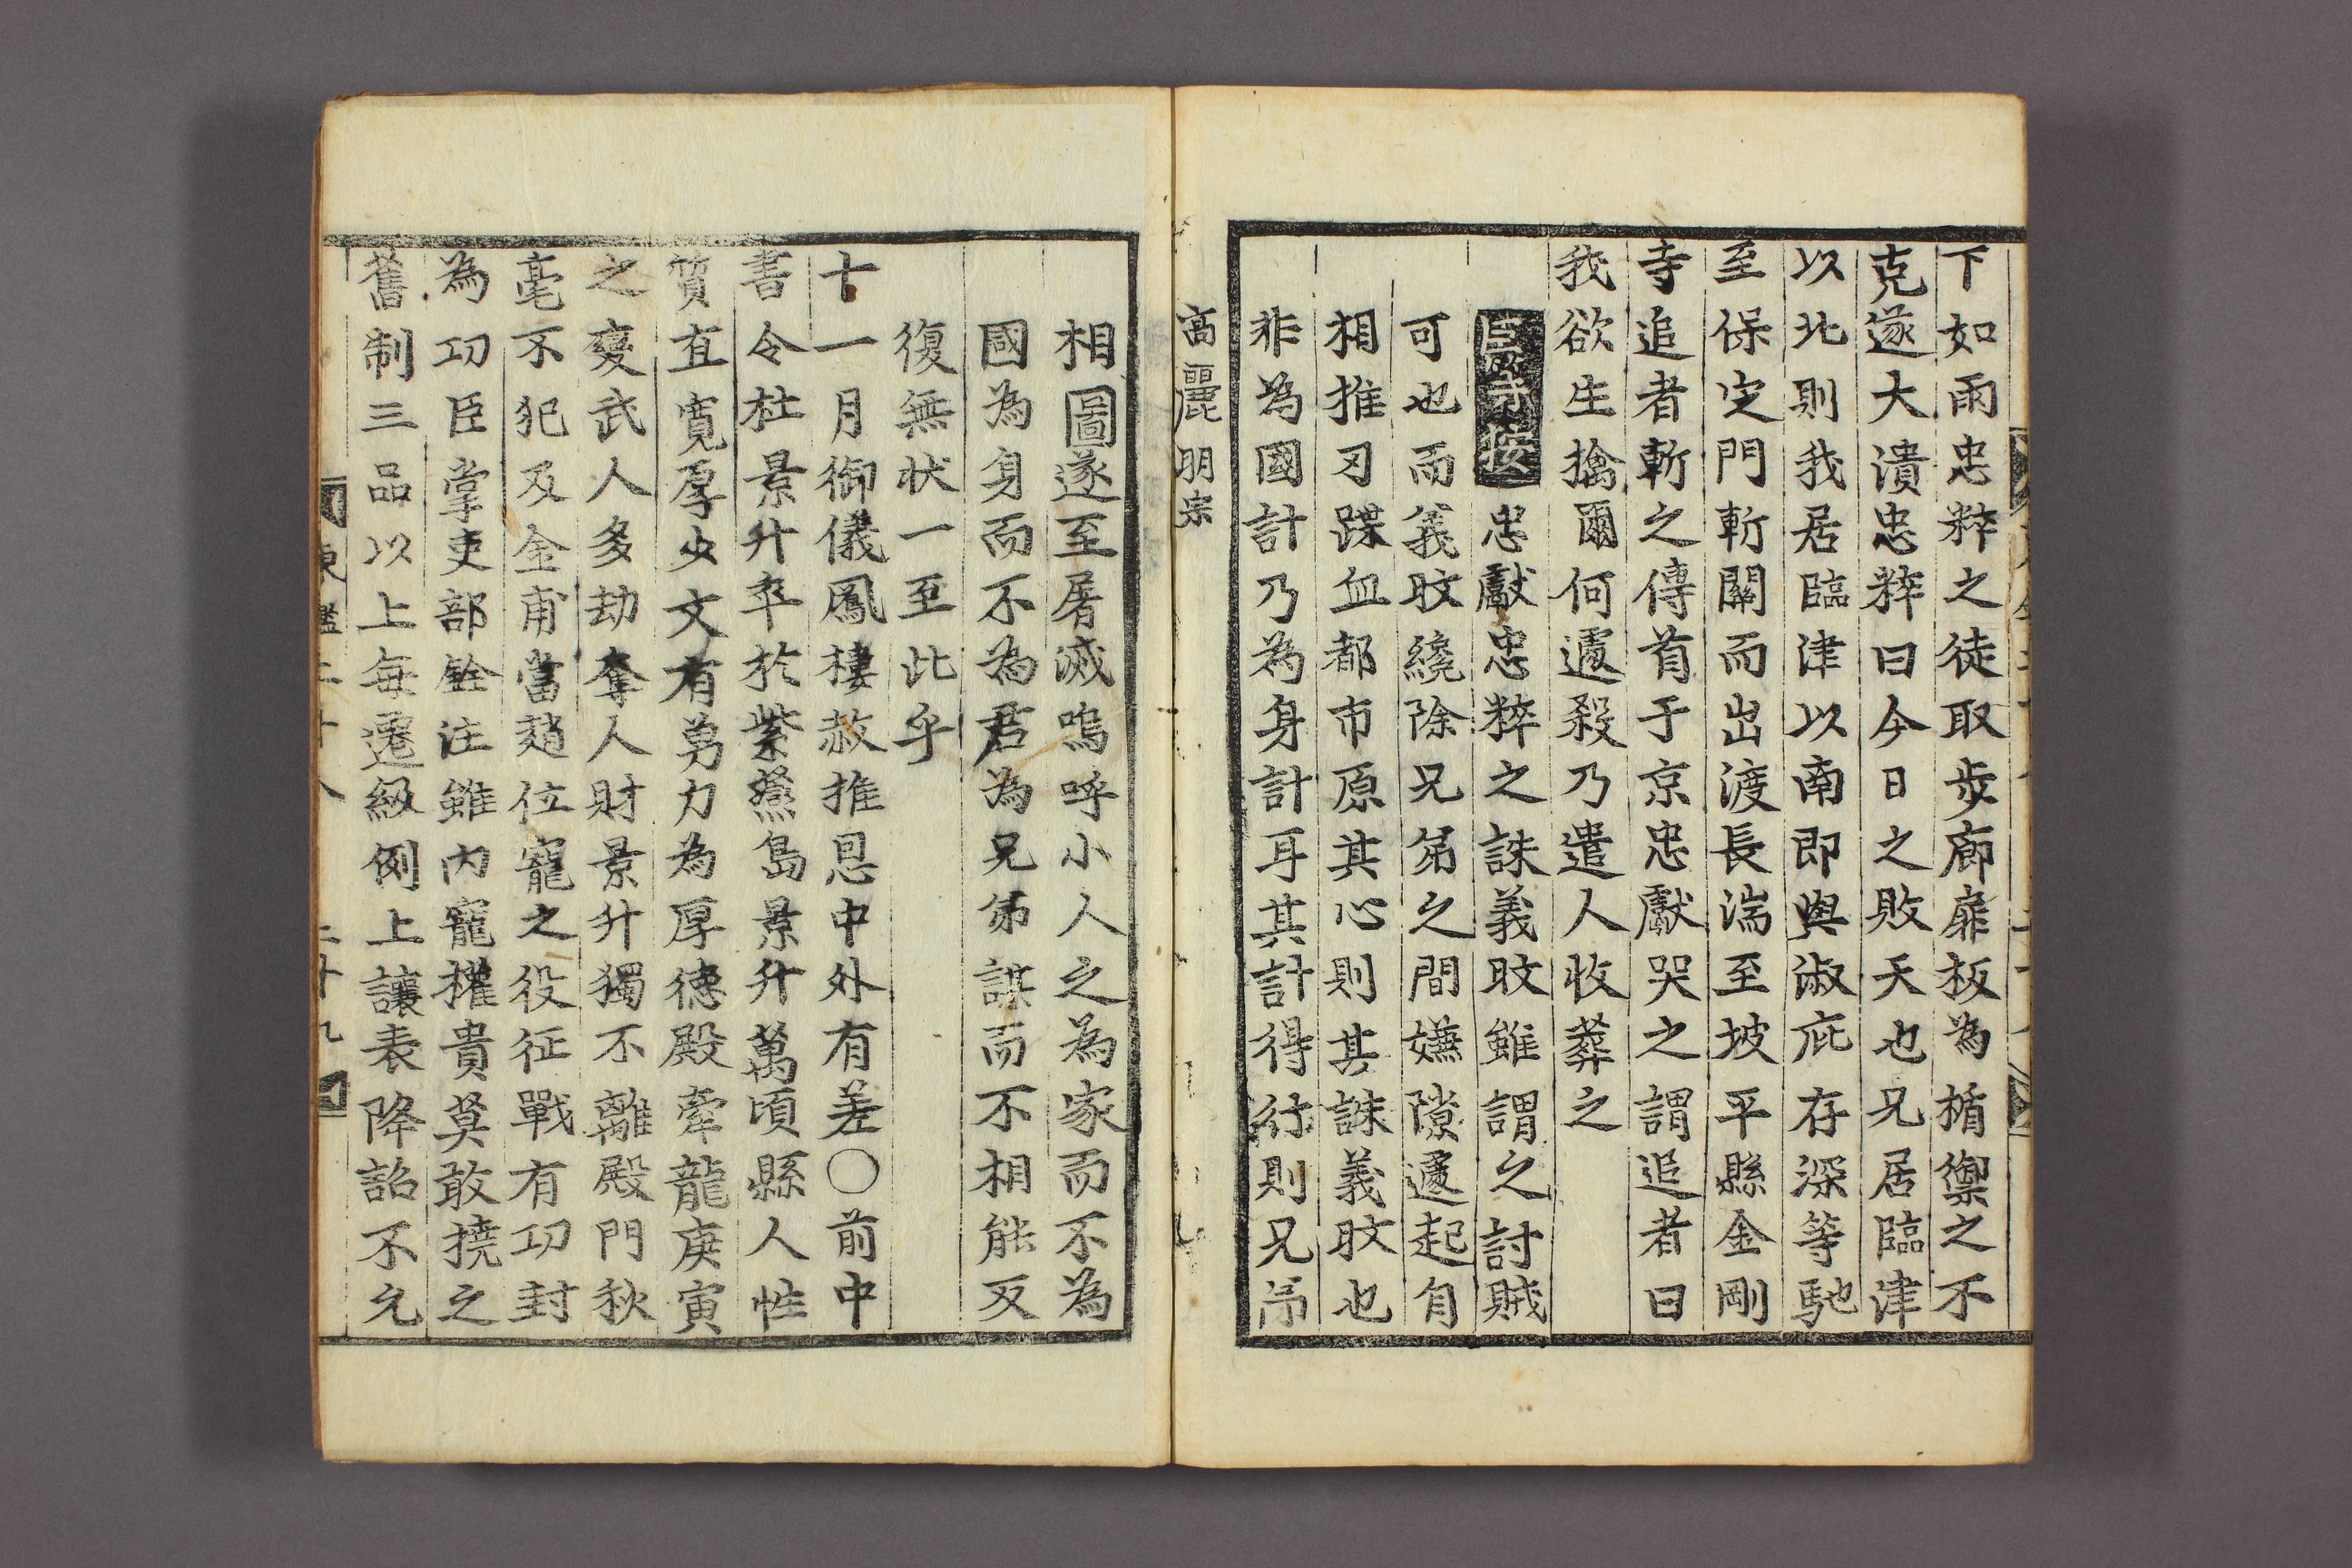 下如雨忠粹之徒取歩廊扉板為楯禦之不
克遂大潰忠粹曰今日之敗天也兄居臨津
以北則我居臨津以南即與淑庇存深等馳
至保定門斬關而出渡長湍至坡平縣金剛
寺追者斬之傳首于京忠獻哭之謂追者曰
我欲生擒爾何遽殺乃遣人收葬之
臣等按忠獻忠粹之誅義旼雖謂之討賊
可也而義旼纔除兄弟之間嫌隙遽起自
相推刃蹀血都市原其心則其誅義旼也
非為國計乃為身計耳其計得行則兄弟
高麗明宗
相圖遂至屠滅嗚呼小人之為家而不為
國為身而不為君為兄弟謀而不相能反
復無狀一至此乎
十一月御儀鳳樓赦推恩中外有差○前中
書令杜景升卒於紫鷰島景升萬頃縣人性
質直寬厚少文有勇力為厚德殿牽龍庚寅
之變武人多劫奪人財景升獨不離殿門秋
毫不犯及金甫當趙位寵之役征戰有功封
為功臣掌吏部銓注雖內寵權貴莫敢撓之
舊制三品以上每遷級例上讓表降詔不允
東鑑二十八 二十九